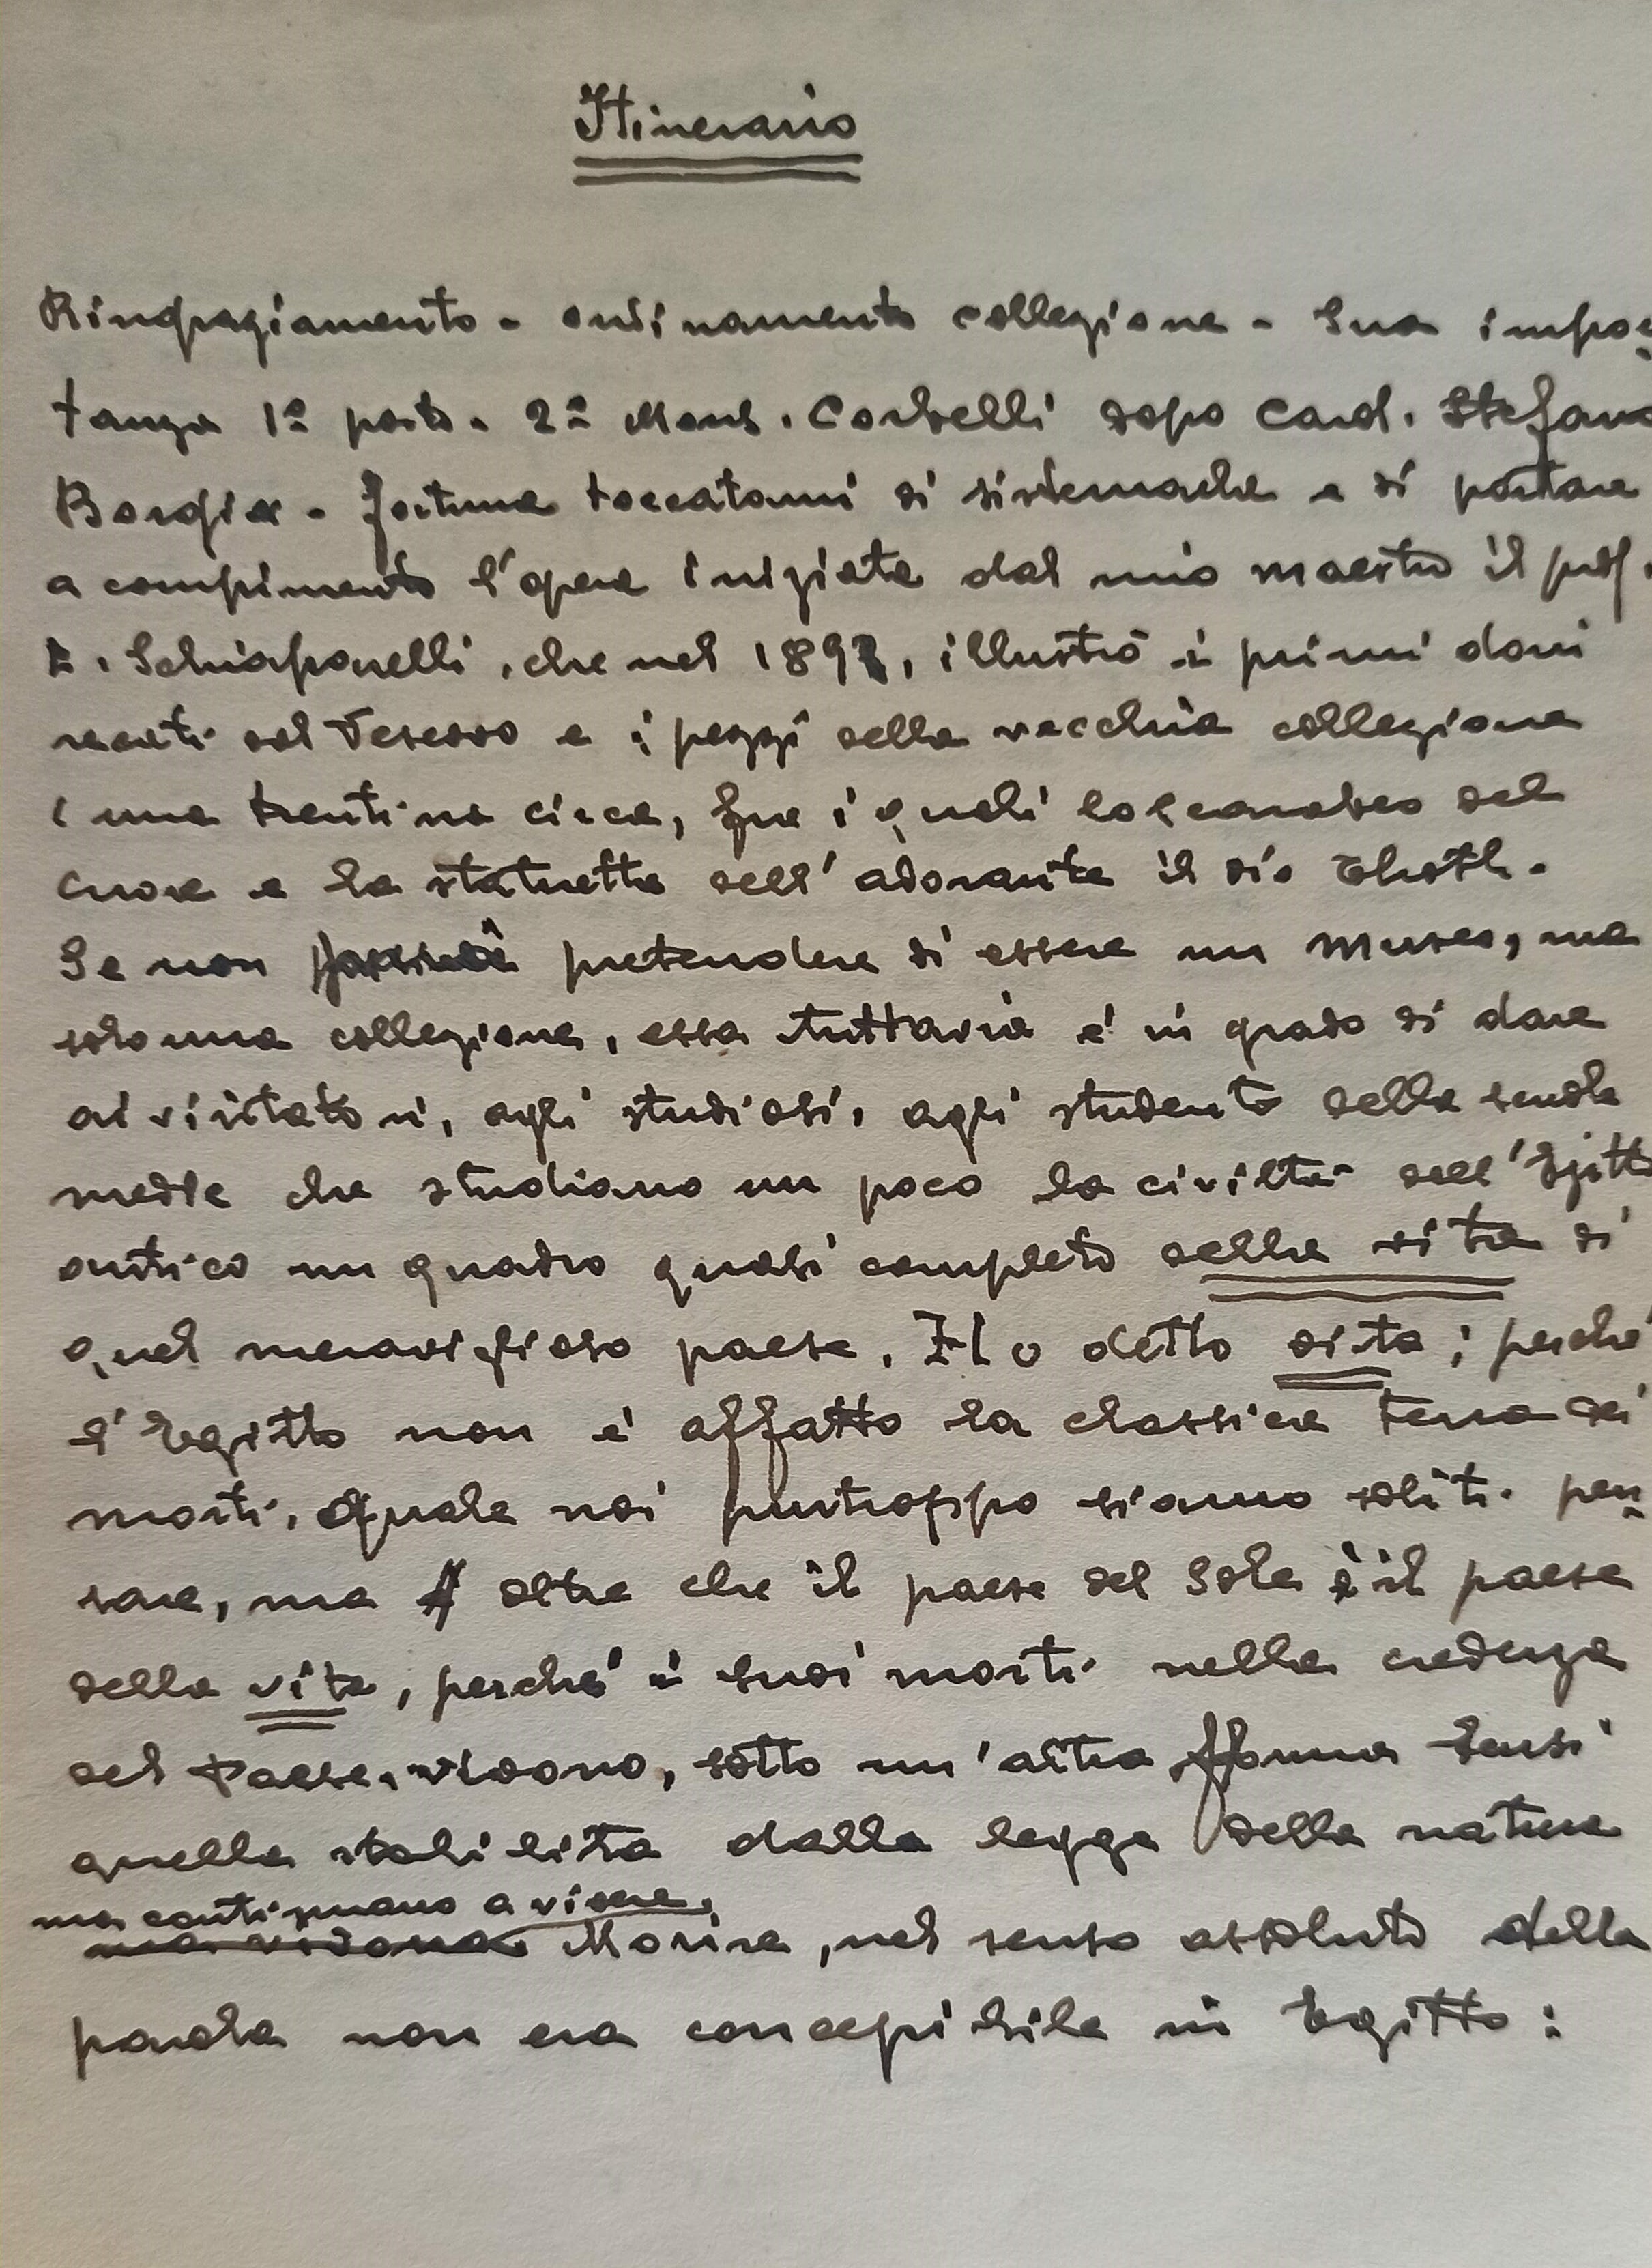 Itinerario
Ringraziamento - ordinamento collezione - Sua impor
tanza 1º posto. 2º Mons. Corbelli dopo Card. Stefano
Borgia - fortuna toccatami di sistemarla e di portare
a compimento l'opera iniziata dal mio maestro il prof.
E. Schiaparelli, che nel 1891, illustrò i primi doni
recati dal Vescovo e i pezzi della vecchia collezione
(una trentina circa, fra i quali lo scarabeo del
cuore e la statuetta dell'adorante il dio Thoth.
Se non pretendere di essere un museo, ma
solo una collezione, essa tuttavia è in grado di dare
ai visitatori, agli studiosi, agli studenti della scuola
media che studiano un poco la civiltà dell'Egitto
antico un quadro quasi completo della vita di
quel meraviglioso paese. Ho detto vita; perché
l'Egitto non è affatto la classica terra dei
morti, quale noi purtroppo siamo soliti pen
sare, ma oltre che il paese del Sole è il paese
della vita, perché i suoi morti nella credenza
del Paese, vivono, sotto un'altra forma bensì
quella stabilita dalla legge della natura
ma continuano a vivere.
ma vivono. Morire, nel senso assoluto della
parola non era concepibile in Egitto: